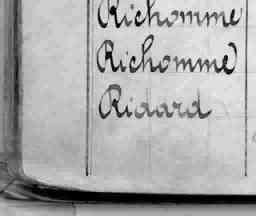 Richomme
Richomme
Ridard